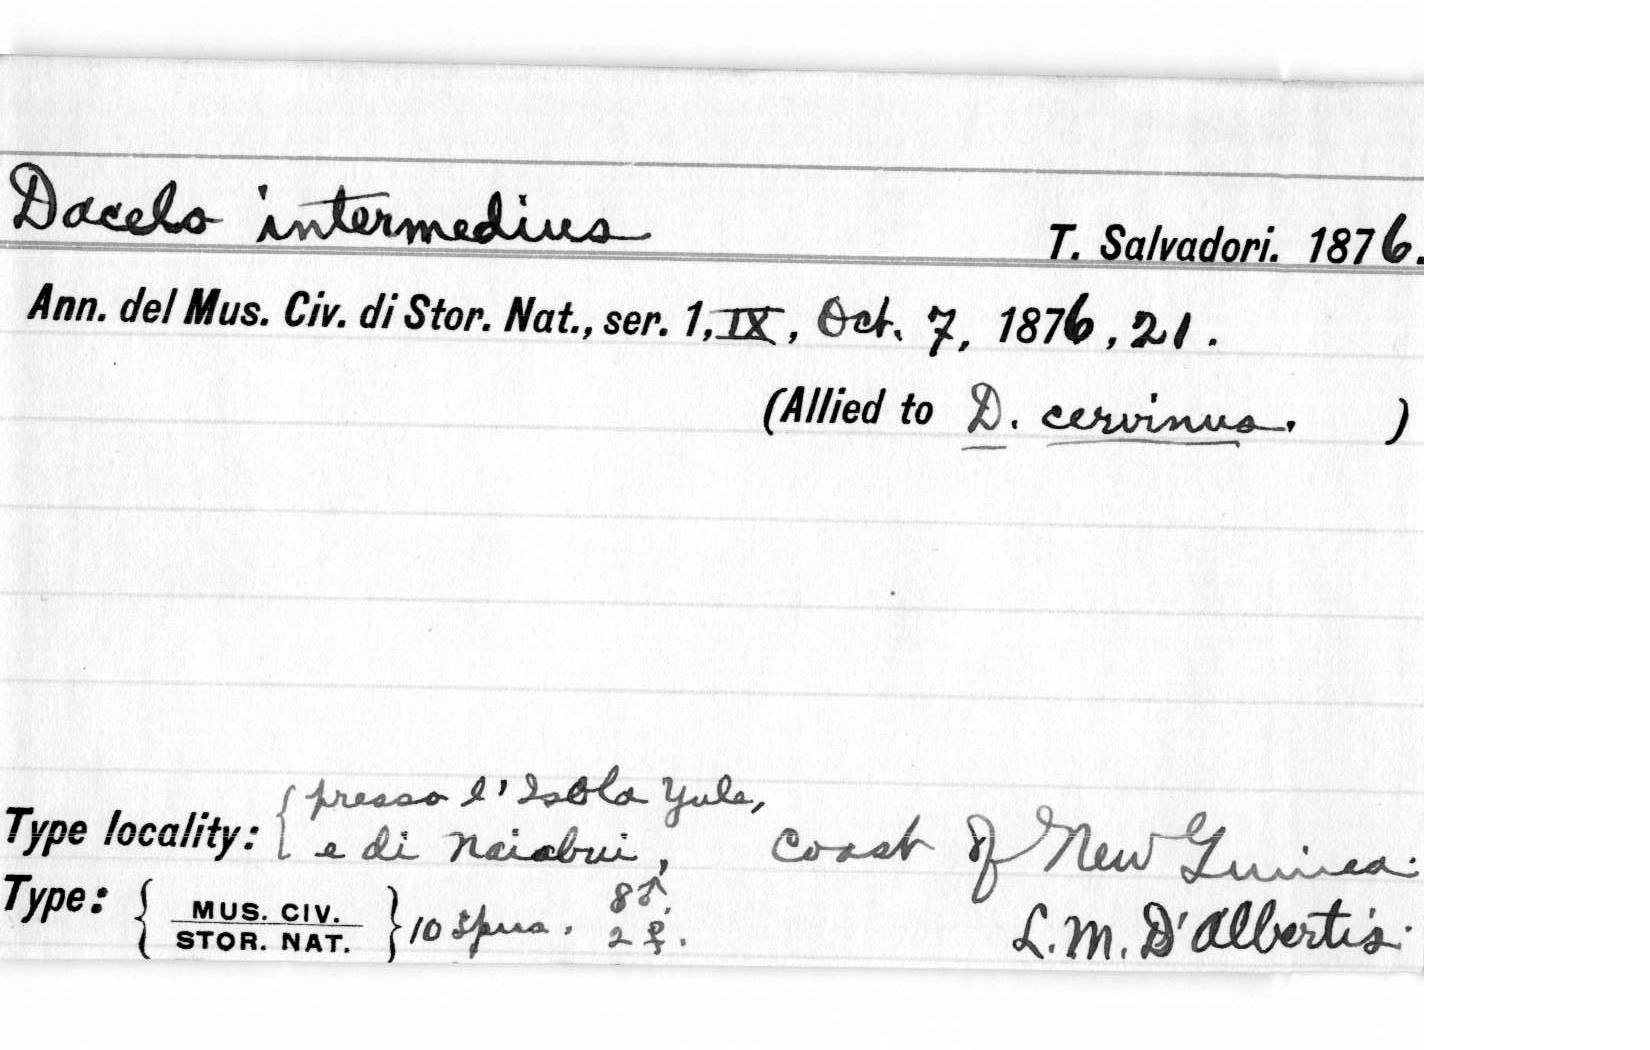 Dacelo intermedius T. Salvadori. 1876.
Ann. del Mus. Civ. di Stor. Nat., ser. 1, IX, Oct. 7, 1876, 21.
(Allied to D. cervinus. )
Type locality: { presso l' Isola Yule,
e di Naiabui, Coast of New Guinea.
Type: { MUS. CIV. STOR. NAT. } 10 spms. 8♂. 2♀.
L. M. D'Albertis.